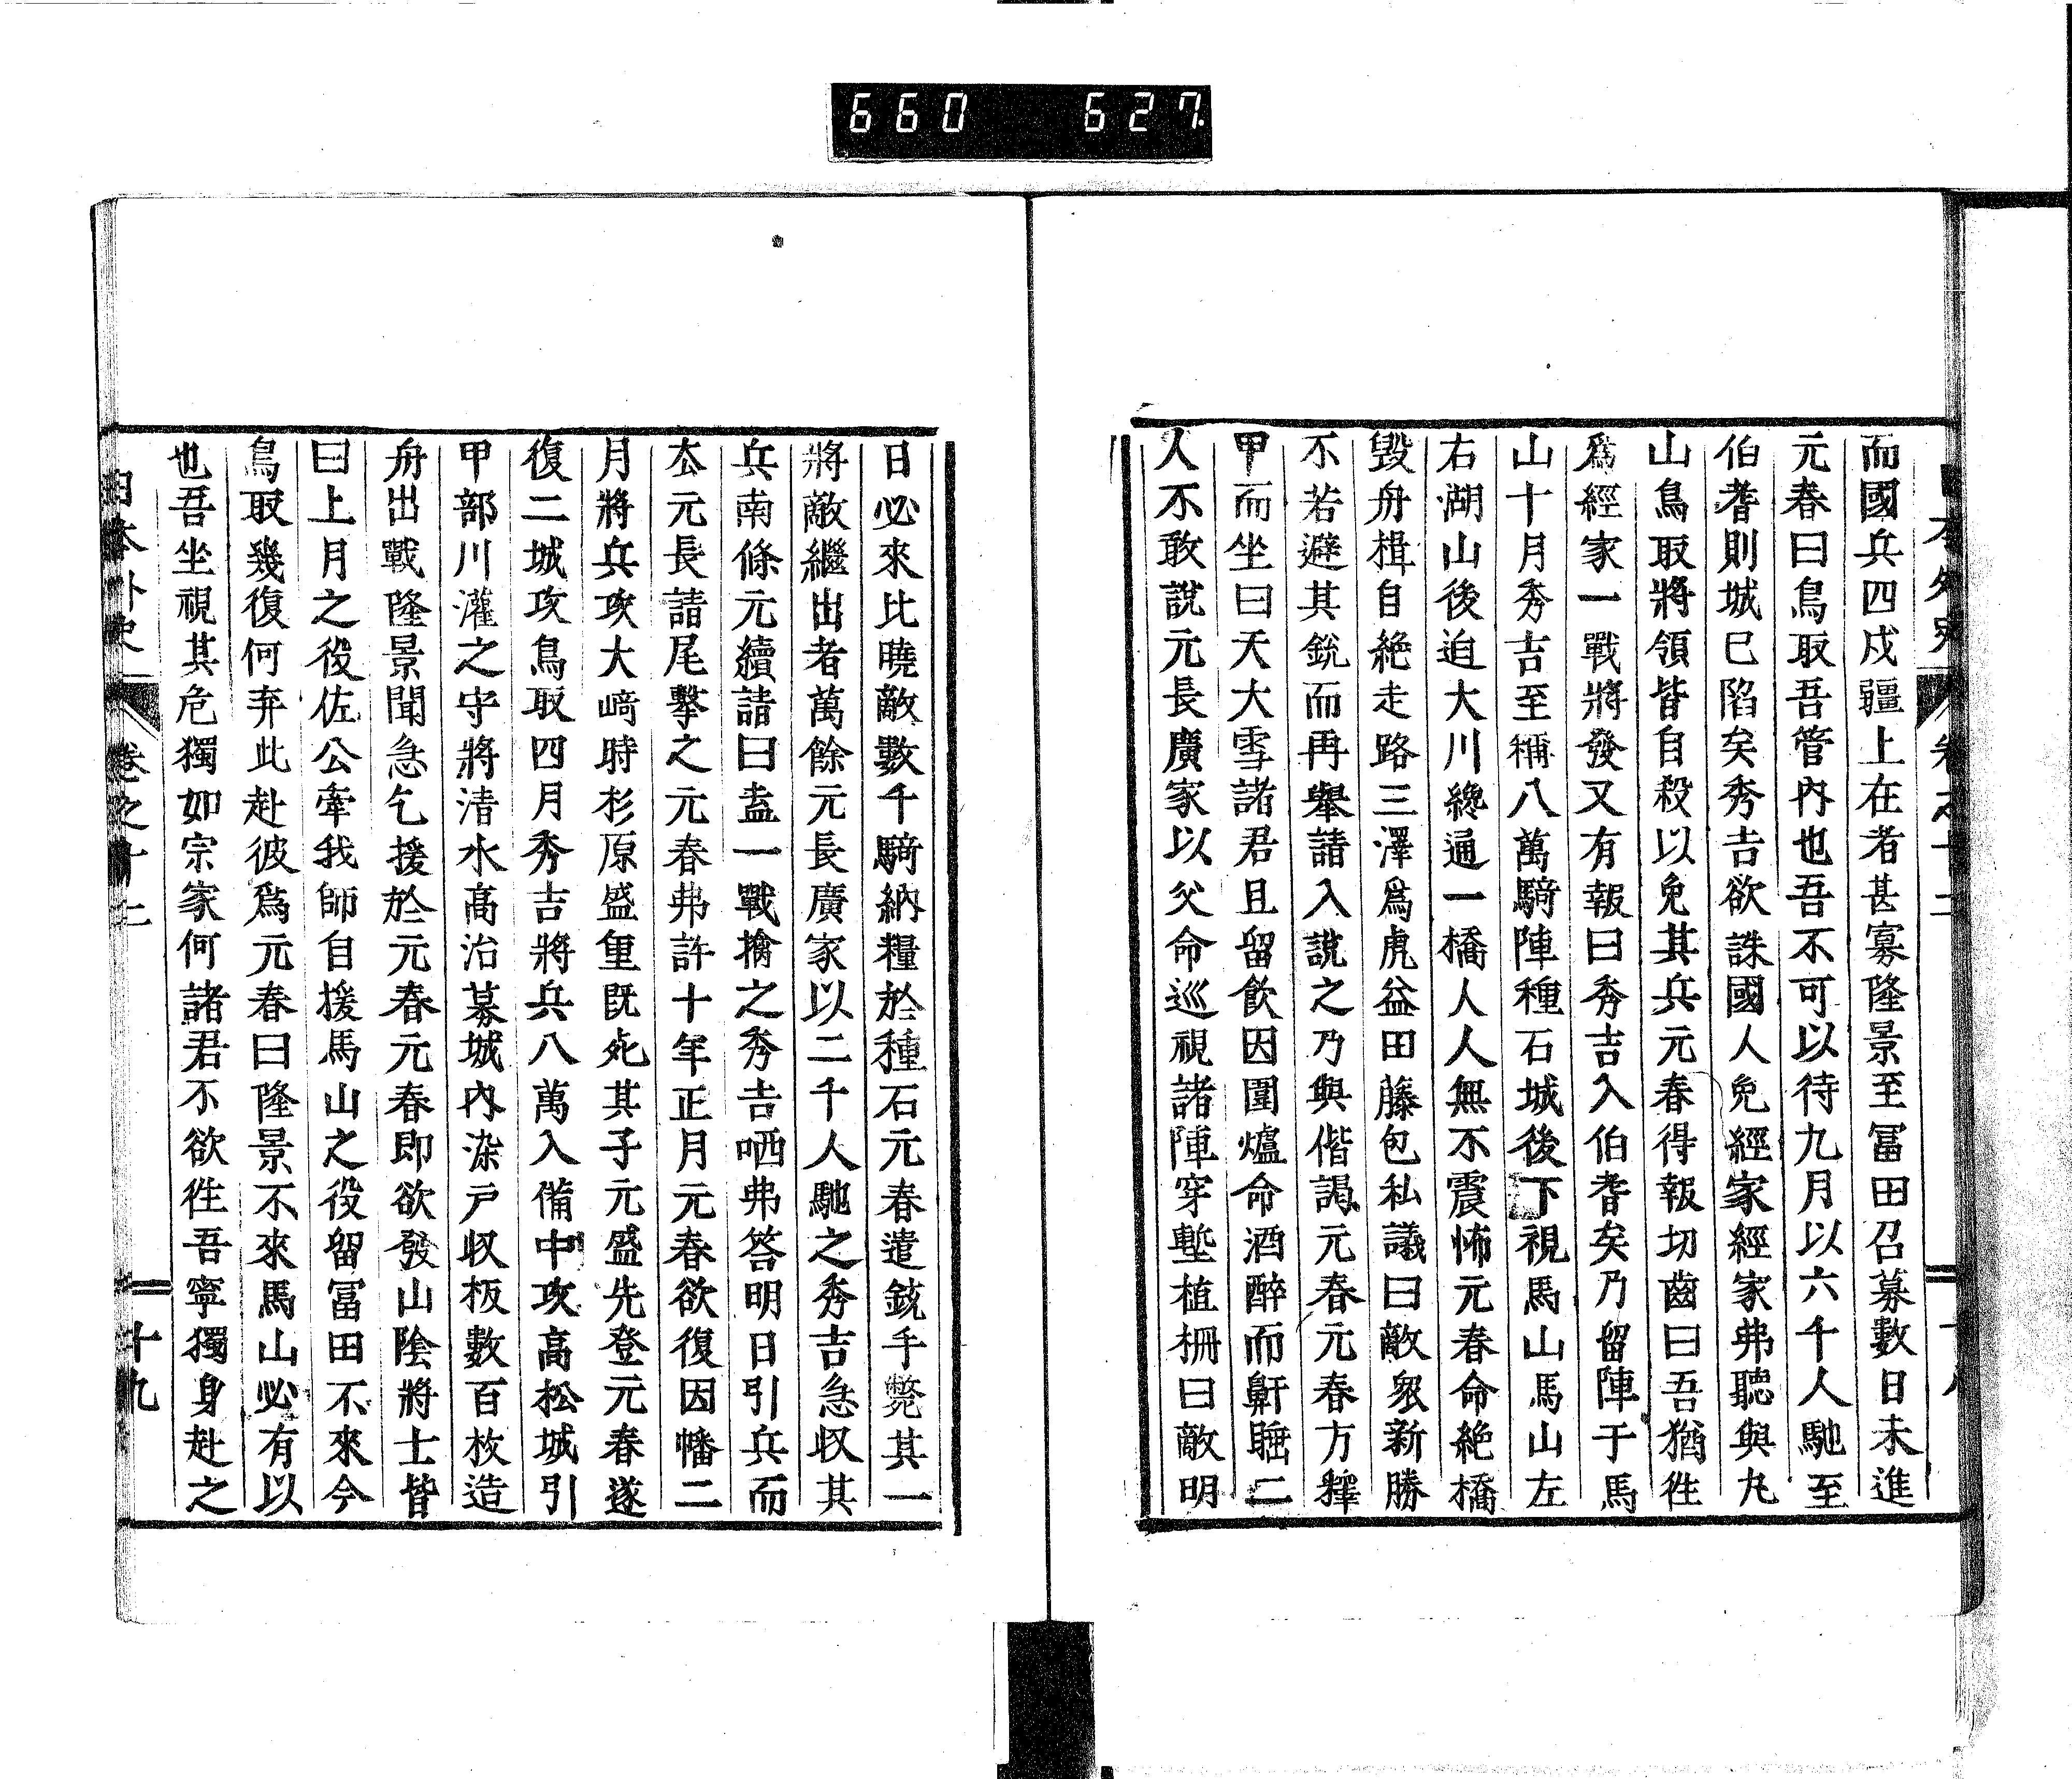 660 627
日本外史 卷之十二 十八
而國兵四戍疆上在者甚寡隆景至冨田召募數日未進
元春曰鳥取吾管內也吾不可以待九月以六千人馳至
伯耆則城巳陷矣秀吉欲誅國人免經家經家弗聽與丸
山鳥取將領皆自殺以免其兵元春得報切齒曰吾猶徃
爲經家一戰將發又有報曰秀吉入伯耆矣乃留陣于馬
山十月秀吉至稱八萬騎陣種石城後下視馬山馬山左
右湖山後迫大川纔通一橋人人無不震怖元春命絶橋
毀舟楫自絶走路三澤爲虎益田藤包私議曰敵衆新勝
不若避其銳而再舉請入說之乃與偕謁元春元春方釋
甲而坐曰天大雪諸君且留飮因圍爐命酒醉而鼾睡二
人不敢說元長廣家以父命巡視諸陣穿塹植柵曰敵明
日必來比曉敵數千騎納糧於種石元春遣銃手斃其一
將敵繼出者萬餘元長廣家以二千人馳之秀吉急収其
兵南條元續請曰盍一戰擒之秀吉哂弗答明日引兵而
去元長請尾擊之元春弗許十年正月元春欲復因幡二
月將兵攻大﨑時杉原盛重既死其子元盛先登元春遂
復二城攻鳥取四月秀吉將兵八萬入備中攻高松城引
甲部川灌之守將清水高治募城內染戸収板數百枚造
舟出戰隆景聞急乞援於元春元春即欲發山陰將士皆
曰上月之役佐公牽我師自援馬山之役留冨田不來今
鳥取幾復何弃此赴彼爲元春曰隆景不來馬山必有以
也吾坐視其危獨如宗家何諸君不欲徃吾寧獨身赴之
日本外史 卷之十二 十九